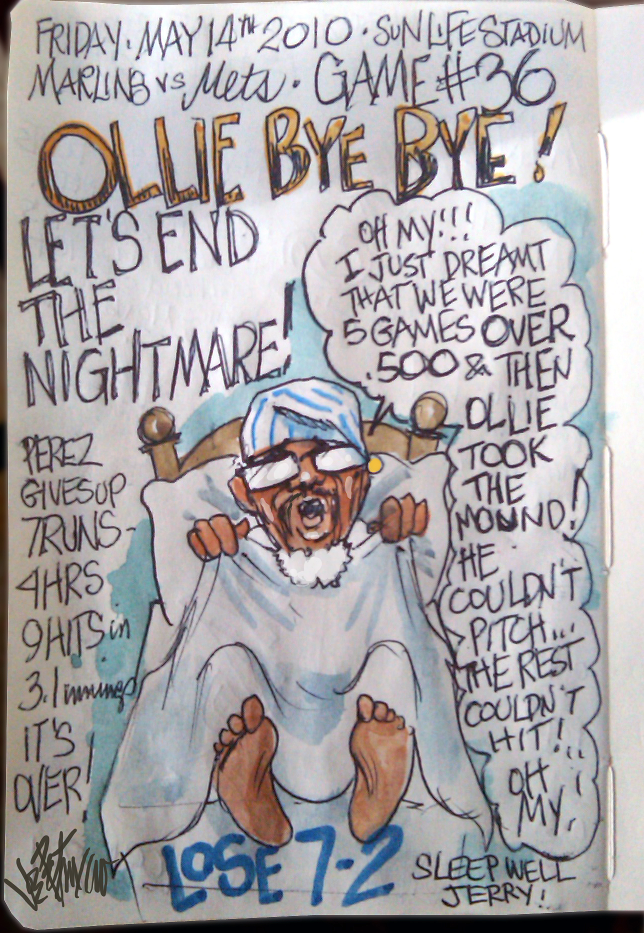 FRIDAY · MAY 14TH 2010 · SUN LIFE STADIUM
MARLINS VS. Mets · GAME #36
OLLIE BYE BYE!
LET'S END
THE
NIGHTMARE!
OH MY!!!
I JUST DREAMT
THAT WE WERE
5 GAMES OVER
.500 & THEN
OLLIE
TOOK
THE
MOUND!
HE
COULDN'T
PITCH...
THE REST
COULDN'T
HIT!..
OH
MY!
PEREZ
GIVES UP
7RUNS-
4HRS
9HITS in
3.1 innings
IT'S
OVER!
LOSE 7-2
SLEEP WELL
JERRY!